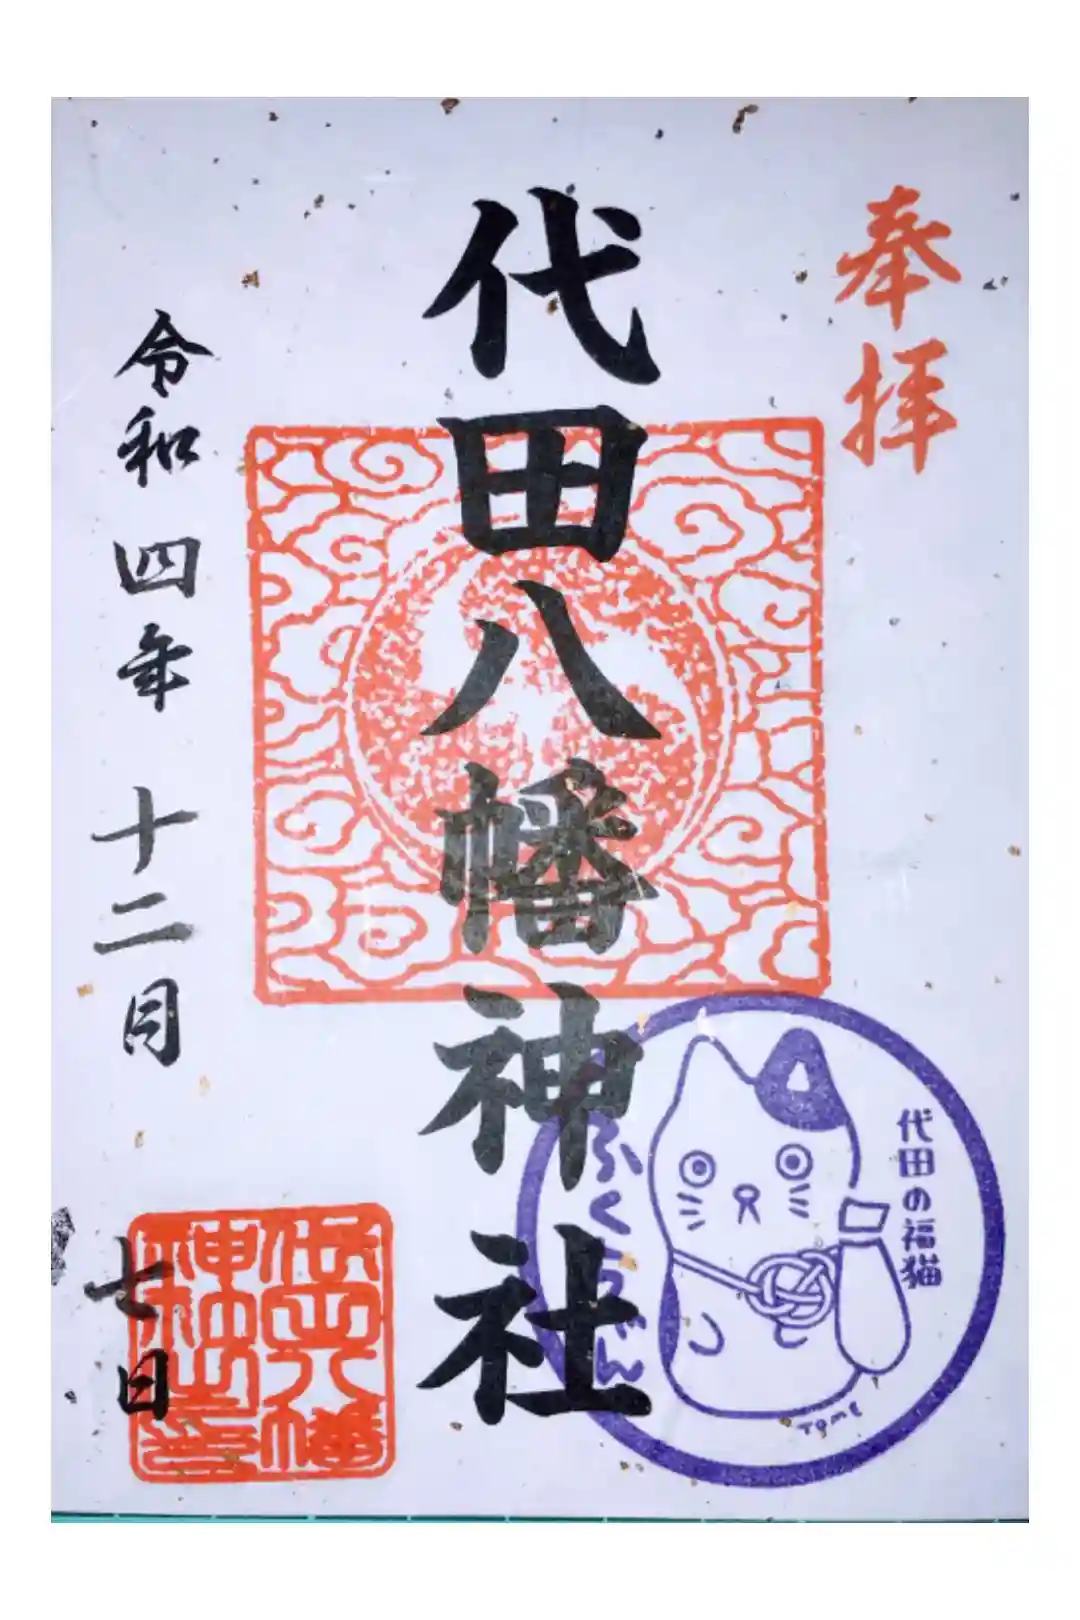 奉拝
代田八幡神社
令和四年十二月七日
代田の福猫
ふくちゃん
TOME